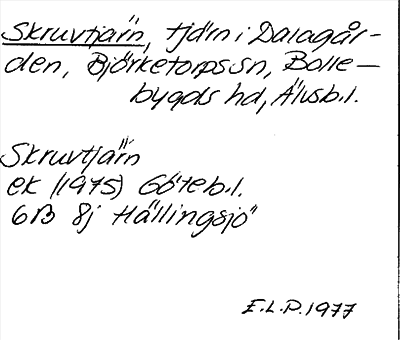 Skruvtjärn, tjärn i Dalagår-
den, Björketorps sn, Bolle-
bygds hd, Älvsb.l.
Skruvtjärn
ek (1975) Göteb.l.
6B 8j Hällingsjö
E.L.P. 1977